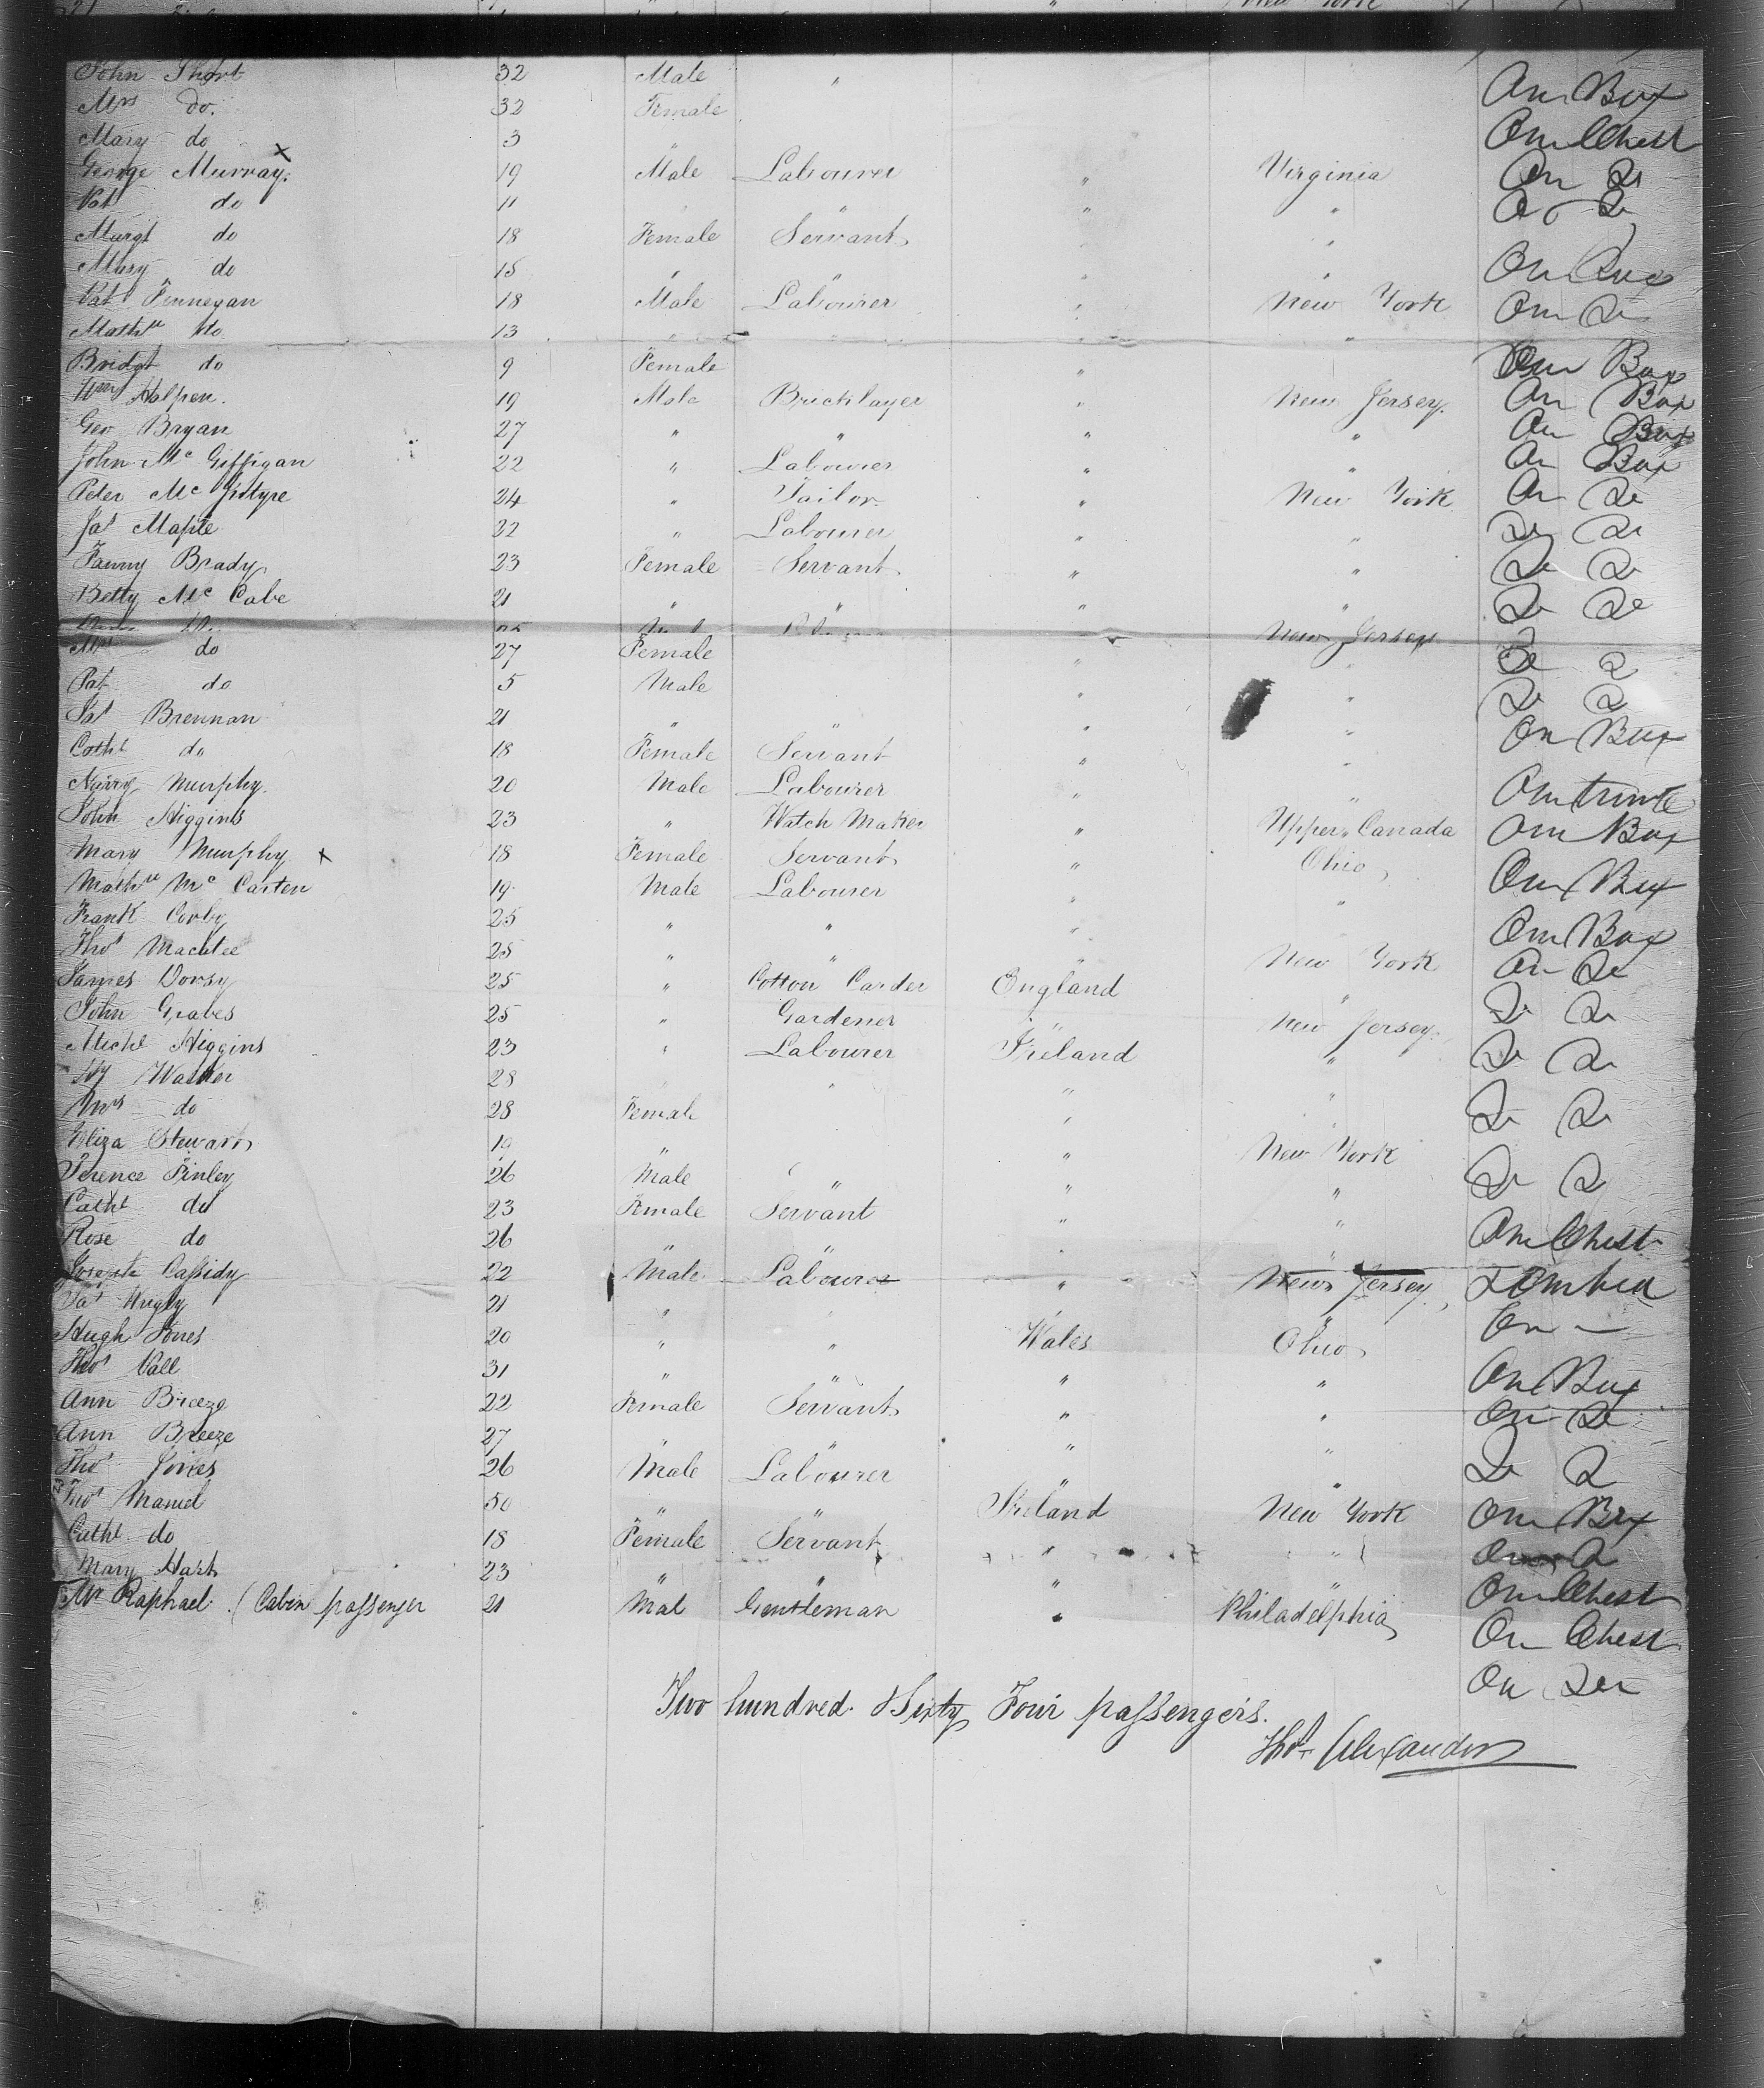 John Short 32 Male " One Box
Mrs do. 32 Female
Mary do 3 " One Chest
George Murray. x 19 Male Labourer " Virginia One Do
Pat do 11 " " " Do
Margt do 18 Female Servant "
Mary do 15 " " " One Box
Pat Finnegan 18 Male Labourer " New York One Do
Mattw do 13 " " " "
Bridgt do 9 Female " One Box
Wm Halpen. 19 Male Bricklayer " New Jersey. One Box
Geo Bryan 27 " " " " One Box
John Mc Giffigan 22 " Labourer " " One Box
Peter Mc Intyre 24 " Tailor " New York One Do
Jas Maple 22 " Labourer " " Do Do
Fanny Brady 23 Female Servant " " Do Do
Betty Mc Cabe 21 " " " " Do Do
25 New Jersey
Mrs do 27 Female " " Do Do
Pat do 5 Male " " Do Do
Pat Brennan 21 " " " " One Box
Cathe do 18 Female Servant " "
Murphy. 20 Male Labourer " " One trunk
John Higgins 23 " Watch Maker " Upper Canada One Box
Mary Murphy x 18 Female Servant " Ohio
Mathw Mc Carten 19 Male Labourer " " One Box
Frank Corby 25 " " " One Box
Thos 25 " " " New York One Do
James Dorsy 25 " Cotton Carder England " Do Do
John Graves 25 " Gardener " New Jersey. Do Do
Michl Higgins 23 " Labourer Ireland "
Walker 28 " " " " Do Do
Mrs do 28 Female " "
Eliza Stewart 19 " " New York Do Do
Terence Finley 26 Male " " "
Cathe do 23 Female Servant " " One Chest
Rose do 26 " " " "
Joseph Cassidy 22 Male Labourer " New Jersey,
Jas Wrigly 21 " " " "
Hugh Jones 20 " " Wales Ohio
Thos Vall 31 " " " " One Box
Ann Breeze 22 Female Servant " " One Do
Ann Breeze 27 " " " " Do Do
Thos Jones 26 Male Labourer " "
Thos Maniel 50 " " Ireland New York One Box
Cathe do 18 Female Servant " " One Do
Mary Hart 23 " " " " One Chest
Mr Raphael. (Cabin passenger 21 Male Gentleman " Philadelphia One Chest
One Do
Two hundred Sixty Four passengers.
Thos Alexander